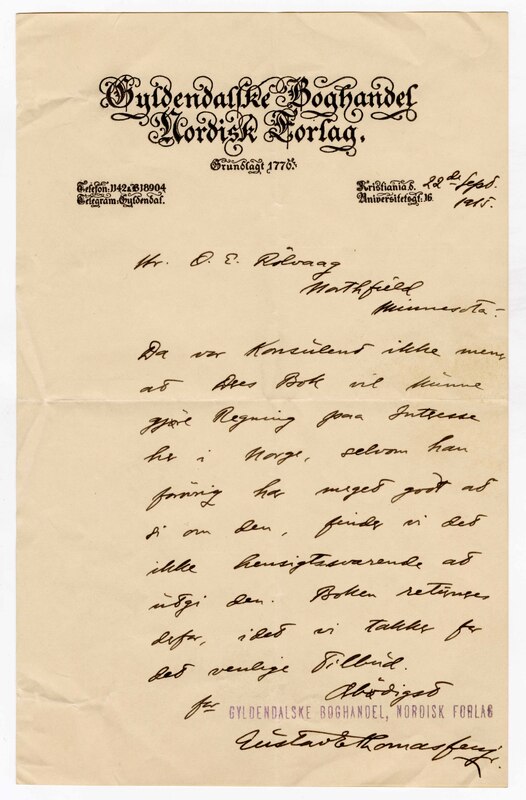 Gyldendalske Boghandel
Nordisk Forlag.
Grundlagt 1770.
Telefon: 1142 & 18904
Telegram: Gyldendal.
Kristiania d. 22de Sept.
Universitetsgt. 16. 1915.
Hr. O. E. Rölvaag
Northfield
Minnesota.
Da vor Konsulent ikke mener
at Deres Bok vil kunne
gjøre Regning paa Interesse
her i Norge, selvom han
forøvrig har meget godt at
si om den, finder vi det
ikke hensigtsvarende at
utgi den. Boken returneres
derfor, idet vi takker for
det venlige Tilbud.
Ærbødigst
for GYLDENDALSKE BOGHANDEL, NORDISK FORLAG
Gustav E. Thomassen jr.